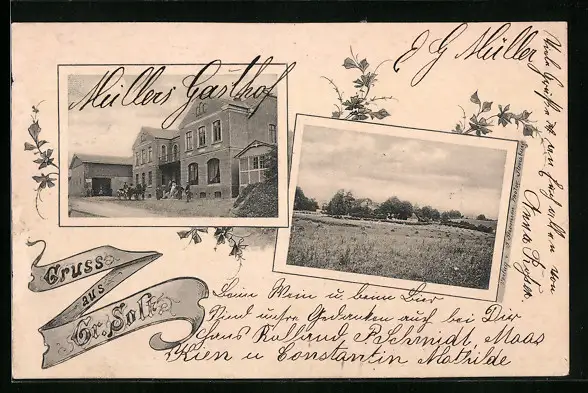 Müllers Gasthof
J G Müller
Gruss
aus
Gr. Solt
Beim Wein u. beim Bier
Sind unsre Gedanken auch bei Dir
Hans Rolland P Schmidt, Maas
Kien u Constantin Mathilde
Viele Grüße
an Euch allen von
Anna